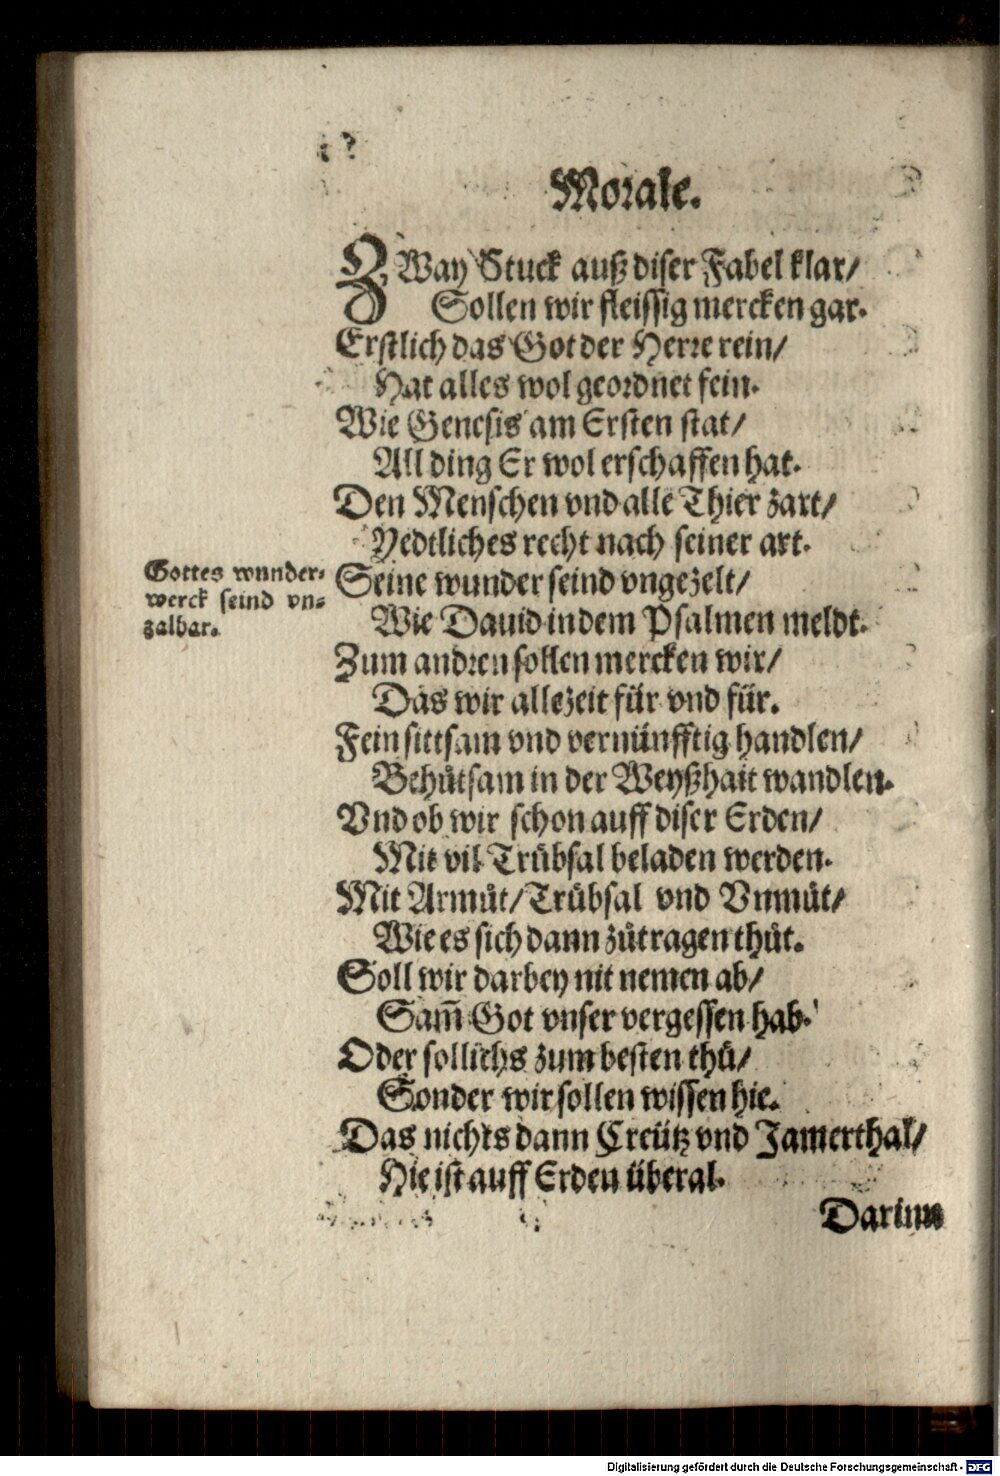 Morale.
ZWay Stuck auß diser Fabel klar/
Sollen wir fleissig mercken gar.
Erstlich das Got der Herre rein/
Hat alles wol geordnet fein.
Wie Genesis am Ersten stat/
All ding Er wol erschaffen hat.
Den Menschen vnd alle Thier zart/
Yedtliches recht nach seiner art.
Gottes wunder⸗
werck seind vn⸗
zalbar.
Seine wunder seind vngezelt/
Wie Dauid in dem Psalmen meldt.
Zum andren sollen mercken wir/
Das wir allezeit für vnd für.
Fein sittsam vnd vernünfftig handlen/
Behůtsam in der Weyßhait wandlen.
Vnd ob wir schon auff diser Erden/
Mit vil Trübsal beladen werden.
Mit Armůt/ Trübsal vnd Vnmůt/
Wie es sich dann zůtragen thůt.
Soll wir darbey nit nemen ab/
Sam̃ Got vnser vergessen hab.
Oder sollichs zum besten thů/
Sonder wir sollen wissen hie.
Das nichts dann Creütz vnd Jamerthal/
Hie ist auff Erden überal.
Darinn
Digitalisierung gefördert durch die Deutsche Forschungsgemeinschaft - DFG